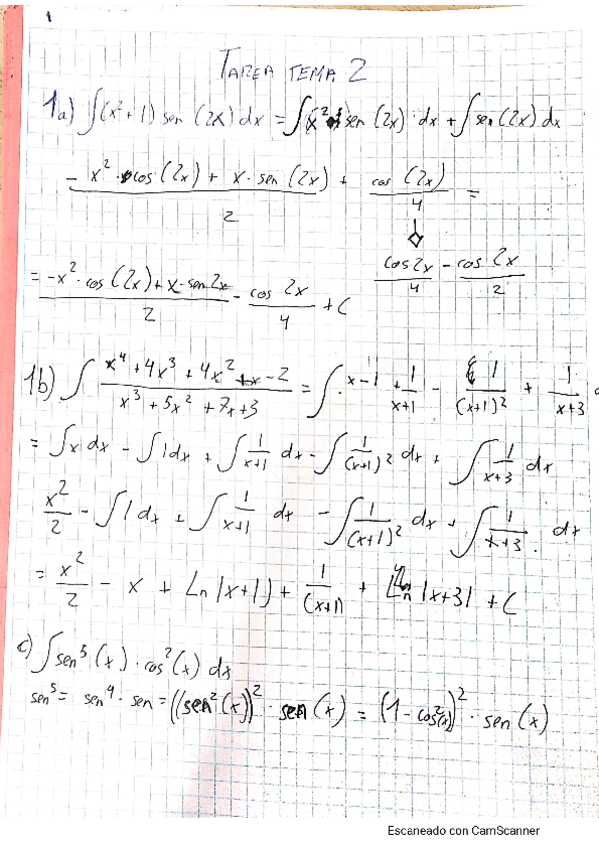 TAREA TEMA 2
1a) ∫(x²+1) sen (2x) dx = ∫(x² sen (2x) · dx + ∫sen(2x) dx
(- x² · cos (2x) + x · sen (2x))/2 + cos (2x)/4 =
cos 2x/4 - cos 2x/2
= (-x² · cos (2x) + x · sen 2x)/2 - cos 2x/4 + C
1b) ∫ (x⁴ + 4x³ + 4x² + x - 2)/(x³ + 5x² + 7x + 3) = ∫ x - 1 + 1/(x+1) - 1/(x+1)² + 1/(x+3)
= ∫x dx - ∫1 dx + ∫ 1/(x+1) dx - ∫ 1/(x+1)² dx + ∫ 1/(x+3) dx
x²/2 - ∫1 dx + ∫ 1/(x+1) dx - ∫ 1/(x+1)² dx + ∫ 1/(x+3) · dx
= x²/2 - x + Ln |x+1| + 1/(x+1) + Ln |x+3| + C
c) ∫sen⁵ (x) · cos² (x) dx
sen⁵ = sen⁴ · sen = ((sen² (x))² · sen (x) = (1 - cos²(x))² · sen (x)
Escaneado con CamScanner